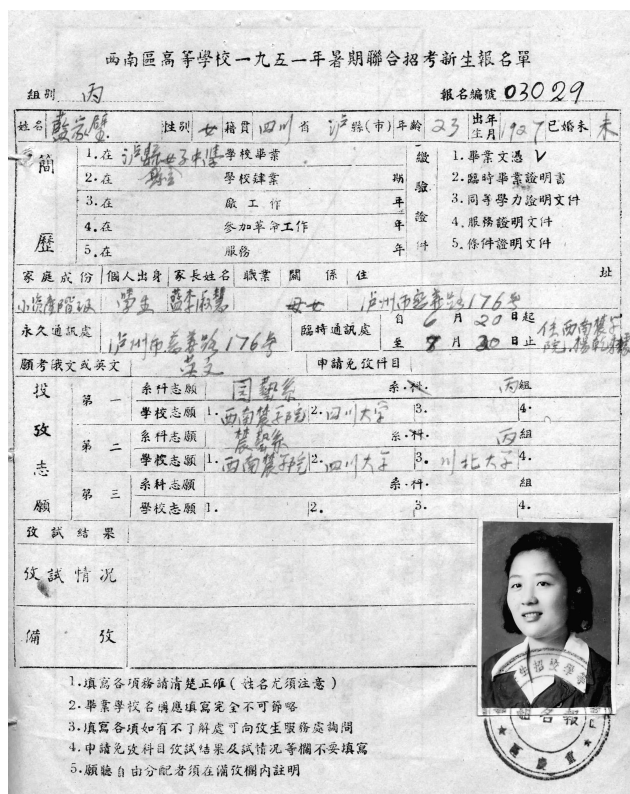 西南區高等學校一九五一年暑期聯合招考新生報名單
組別 丙 報名編號 03029
姓名 藍 性別 女 籍貫 四川 省 泸 縣(市) 年齡 23 出生年月 1927 已婚未 未
簡歷
1.在 泸縣女子中學 學校畢業
2.在 學校肄業 期
3.在 廠工作 年
4.在 參加革命工作 年
5.在 服務 年
繳驗證件
1.畢業文憑 ✓
2.臨時畢業證明書
3.同等學力證明文件
4.服務證明文件
5.條件證明文件
家庭成份 個人出身 家長姓名 職業 關係 住址
小資產階級 學生 藍李淑慧 母女 泸州市慈善路176号
永久通訊處 泸州市慈善路176号 臨時通訊處 自 6 月 20 日起 至 8 月 30 日止 住西南農学院
願考俄文或英文 英文 申請免攷科目
投攷志願
第一 系科志願 园藝系 系·科· 丙 組
學校志願 1.西南農学院 2.四川大学 3. 4.
第二 系科志願 農藝系 系·科· 丙 組
學校志願 1.西南農学院 2.四川大学 3.川北大学 4.
第三 系科志願 系·科· 組
學校志願 1. 2. 3. 4.
攷試結果
攷試情况
備攷
1.填寫各項務請清楚正確(姓名尤須注意)
2.畢業學校名稱應填寫完全不可節略
3.填寫各項如有不了解處可向攷生服務處詢問
4.申請免攷科目攷試結果及試情况等欄不要填寫
5.願聽自由分配者須在備攷欄內註明